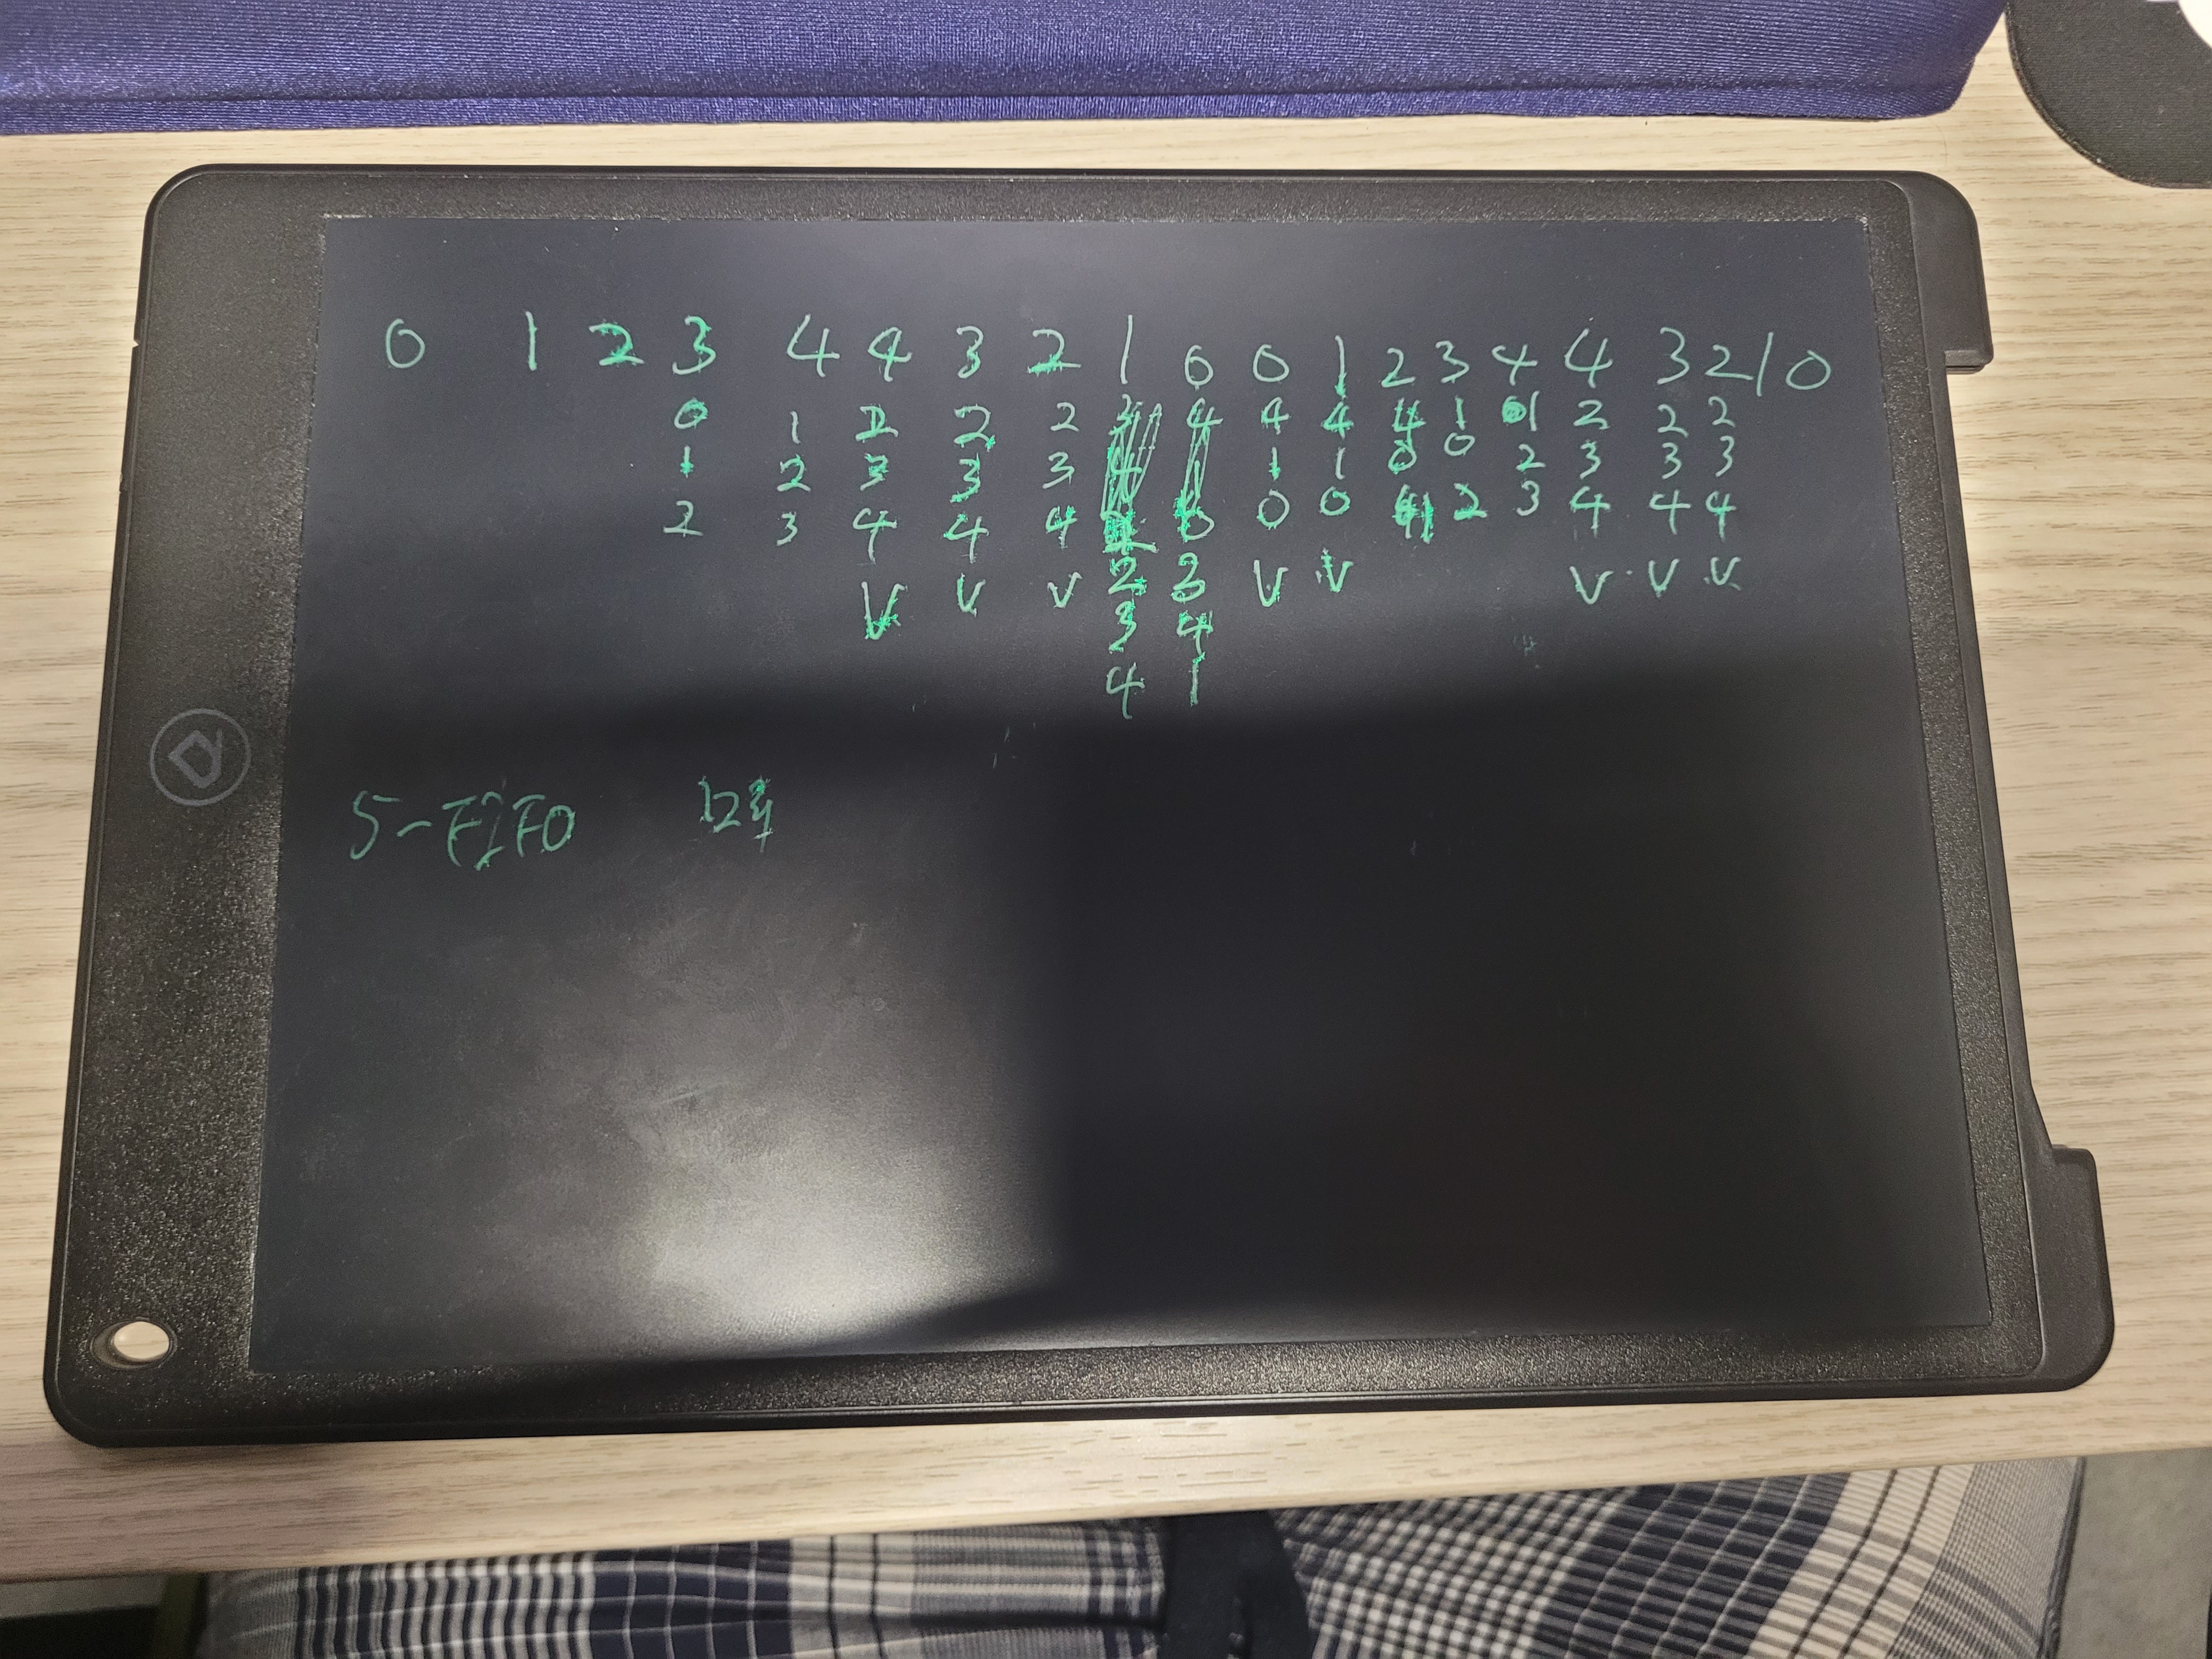 0 1 2 3 4 4 3 2 1 0 0 1 2 3 4 4 3 2 1 0
0 1 2 2 2 4 4 1 1 2 2 2
1 2 3 3 3 1 1 0 0 2 3 3 3
2 3 4 4 4 0 0 2 3 4 4 4
V V V 2 3 V V V V V
3 4
4 1
5-FIFO